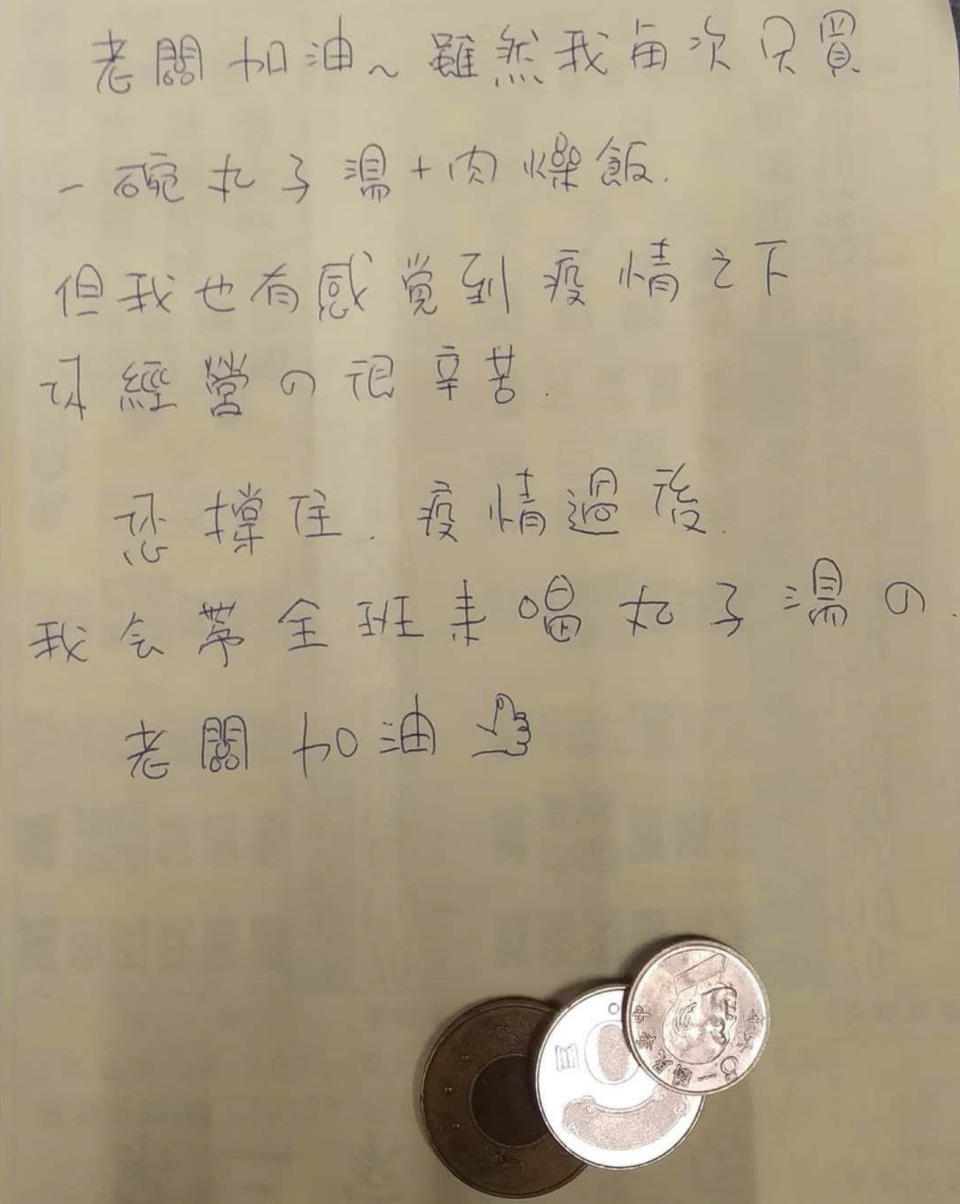 老闆加油~雖然我每次只買
一碗丸子湯+肉燥飯.
但我也有感覚到疫情之下
你經營の很辛苦.
您撐住.疫情過後.
我会帶全班来喝丸子湯の.
老闆加油
中華民國一